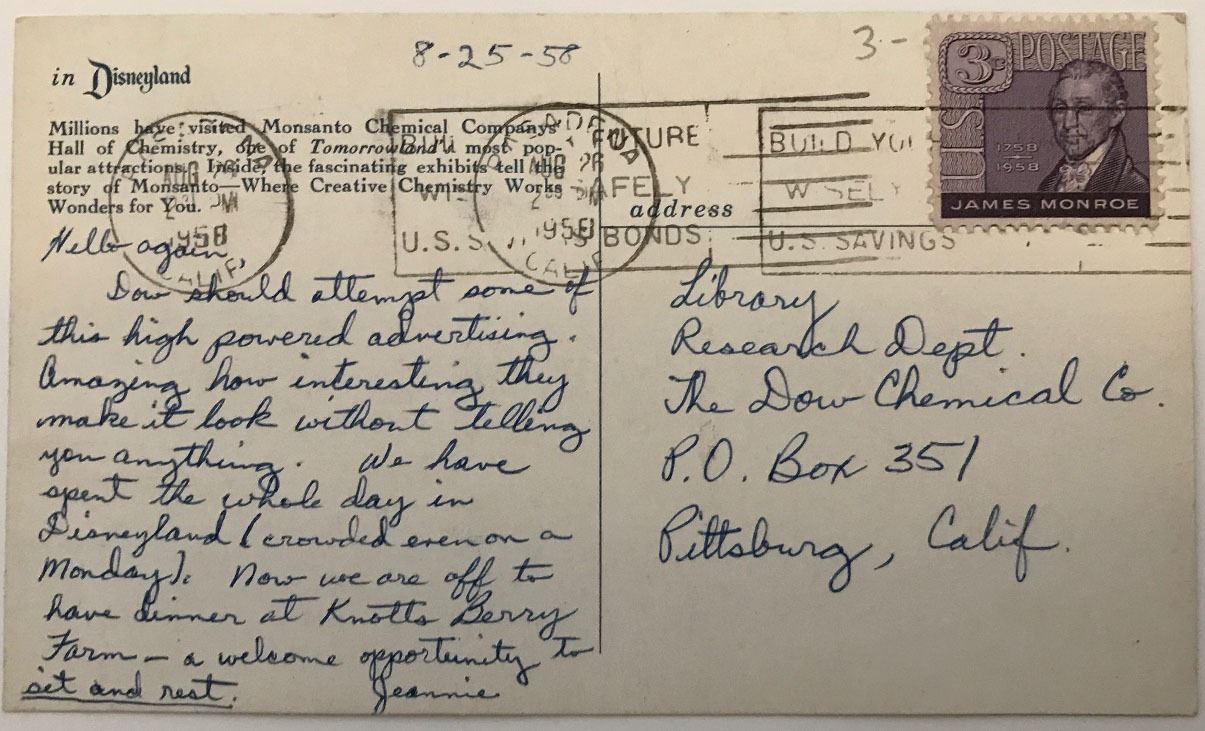 8-25-58
3-
in Disneyland
Millions have visited Monsanto Chemical Company's
Hall of Chemistry, one of Tomorrowland's most pop-
ular attractions. Inside, the fascinating exhibits tell the
story of Monsanto—Where Creative Chemistry Works
Wonders for You.
Hello again,
Dow should attempt some of
this high powered advertising.
Amazing how interesting they
make it look without telling
you anything. We have
spent the whole day in
Disneyland (crowded even on a
Monday). Now we are off to
have dinner at Knotts Berry
Farm — a welcome opportunity to
sit and rest. Jeannie
PASADENA
AUG 26
PM
1958
CALIF
FUTURE
SAFELY
U.S. SAVINGS BONDS
BUILD YOU
WISELY
U.S. SAVINGS
3c POSTAGE
U.S.
1758
1958
JAMES MONROE
address
Library
Research Dept.
The Dow Chemical Co.
P.O. Box 351
Pittsburg, Calif.